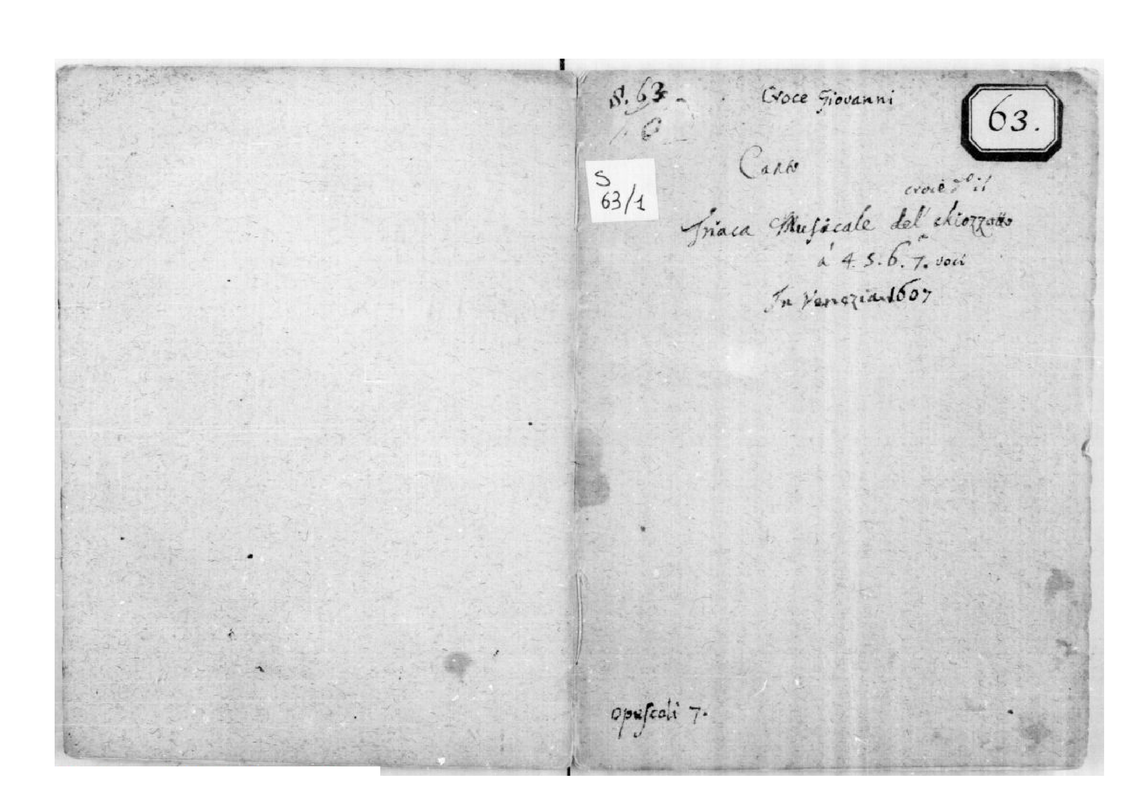 S. 63
6
Croce Giovanni
63.
S
63/1
Canto
croce il
Triaca Musicale del chiozzotto
à 4. 5. 6. 7. voci
In Venezia 1607
opuscoli 7.